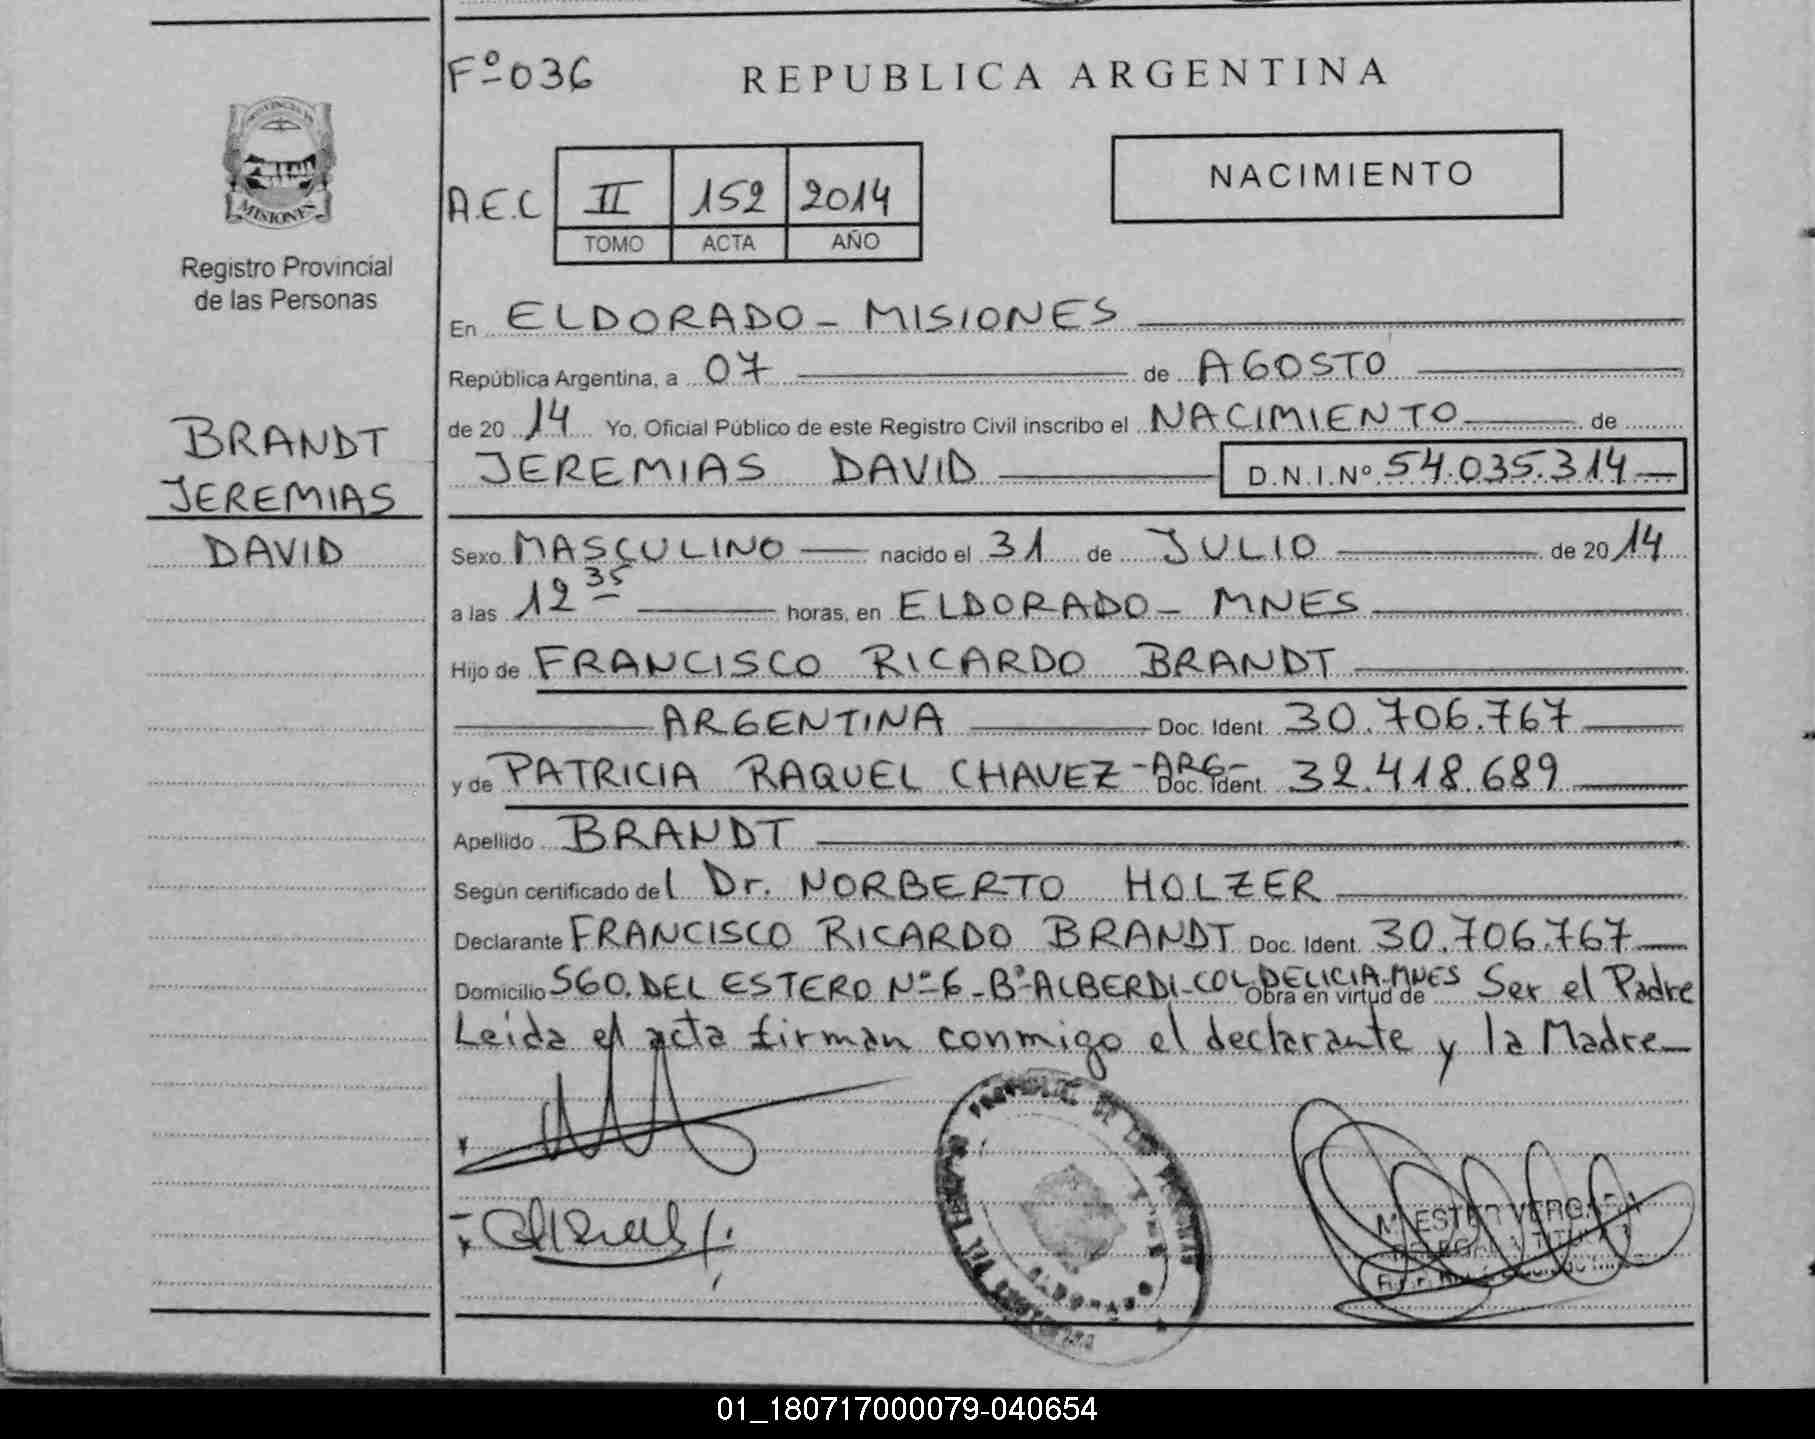 Fº 036
REPUBLICA ARGENTINA
A.E.C
II 152 2014
TOMO ACTA AÑO
NACIMIENTO
MISIONES
Registro Provincial
de las Personas
BRANDT
JEREMIAS
DAVID
En ELDORADO - MISIONES
República Argentina, a 07 de AGOSTO
de 20 14 Yo, Oficial Público de este Registro Civil inscribo el NACIMIENTO de
JEREMIAS DAVID D.N.I.Nº 54.035.314
Sexo MASCULINO nacido el 31 de JULIO de 20 14
a las 12 35 horas, en ELDORADO - MNES
Hijo de FRANCISCO RICARDO BRANDT
ARGENTINA Doc. Ident. 30.706.767
y de PATRICIA RAQUEL CHAVEZ -ARG- Doc. Ident. 32.418.689
Apellido BRANDT
Según certificado del Dr. NORBERTO HOLZER
Declarante FRANCISCO RICARDO BRANDT Doc. Ident. 30.706.767
Domicilio SGO. DEL ESTERO Nº 6 - Bº ALBERDI - COL DELICIA - MNES Obra en virtud de Ser el Padre
Leida el acta firman conmigo el declarante y la Madre
ESTER VERGARA
01_180717000079-040654